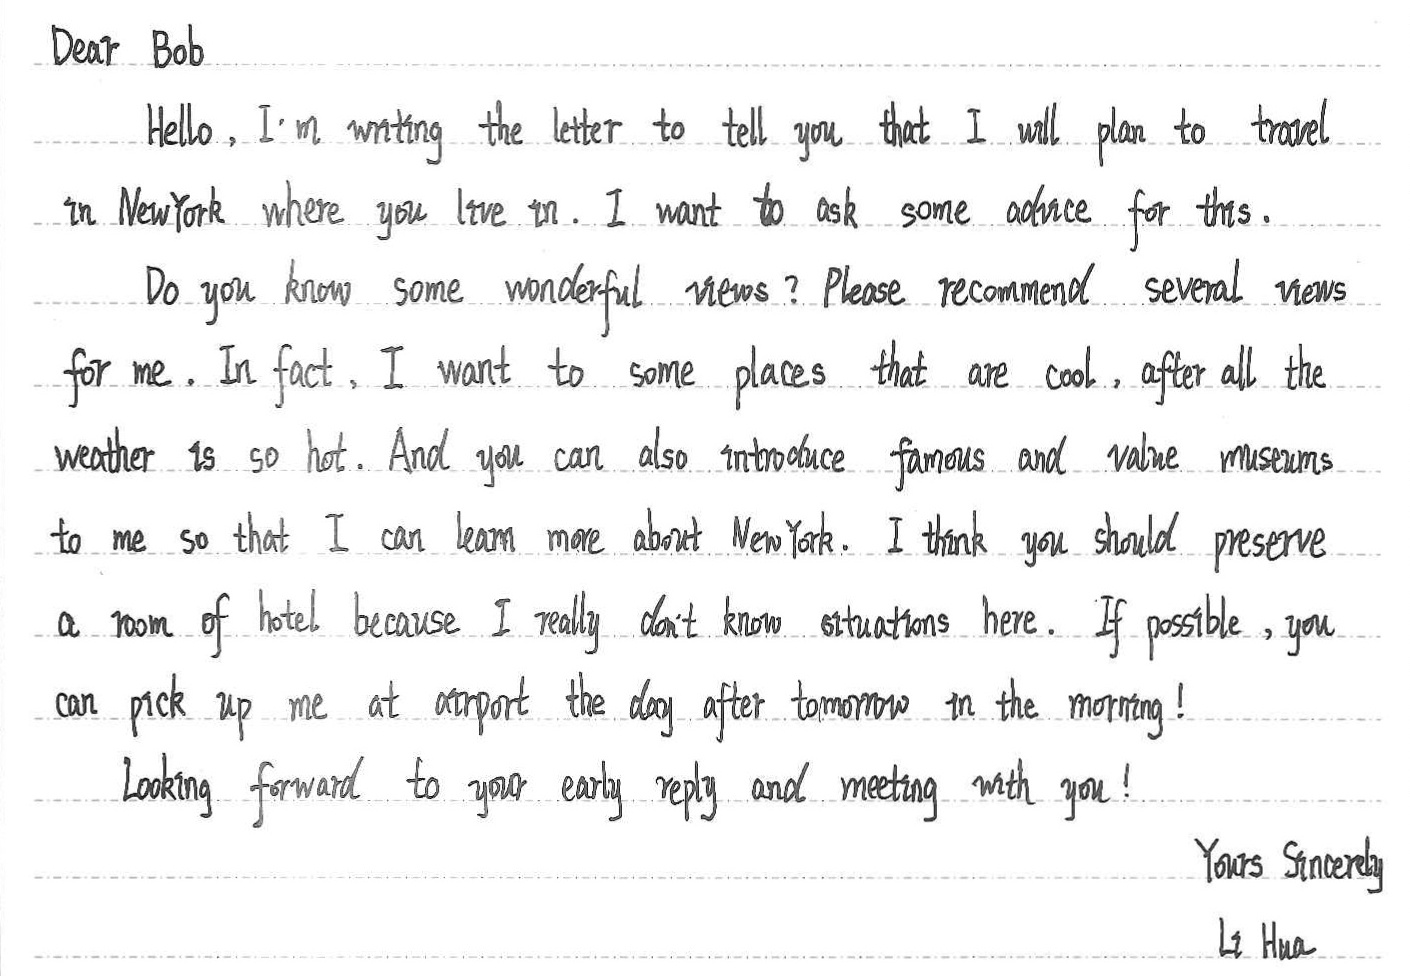 Dear Bob
Hello, I'm writing the letter to tell you that I will plan to travel
in NewYork where you live in. I want to ask some advice for this.
Do you know some wonderful views? Please recommend several views
for me. In fact, I want to some places that are cool, after all the
weather is so hot. And you can also introduce famous and value museums
to me so that I can learn more about New York. I think you should preserve
a room of hotel because I really don't know situations here. If possible, you
can pick up me at airport the day after tomorrow in the morning!
Looking forward to your early reply and meeting with you!
Yours Sincerely
Li Hua